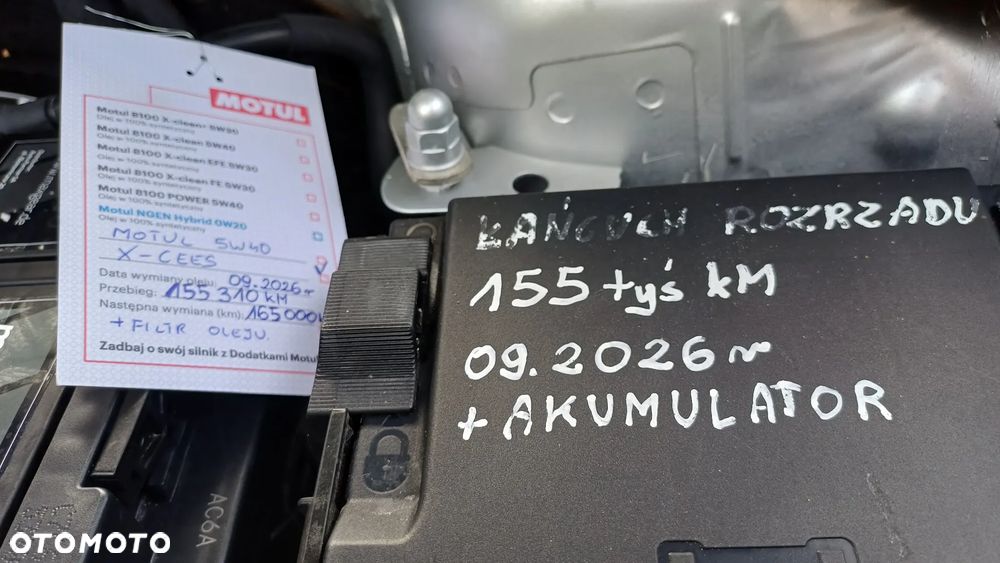 MOTUL
Motul 8100 X-clean+ 5W30
Olej w 100% syntetyczny
Motul 8100 X-clean 5W40
Olej w 100% syntetyczny
Motul 8100 X-clean EFE 5W30
Olej w 100% syntetyczny
Motul 8100 X-clean FE 5W30
Olej w 100% syntetyczny
Motul 8100 POWER 5W40
Olej w 100% syntetyczny
Motul NGEN Hybrid 0W20
Olej w 100% syntetyczny
MOTUL 5W40
X-CEES
Data wymiany oleju: 09.2026r
Przebieg: 155 310 KM
Następna wymiana (km): 165 000
+ FILTR OLEJU.
Zadbaj o swój silnik z Dodatkami Motul
ŁAŃCUCH ROZRZADU
155 tyś kM
09.2026r
+ AKUMULATOR
AC6A
OTOMOTO